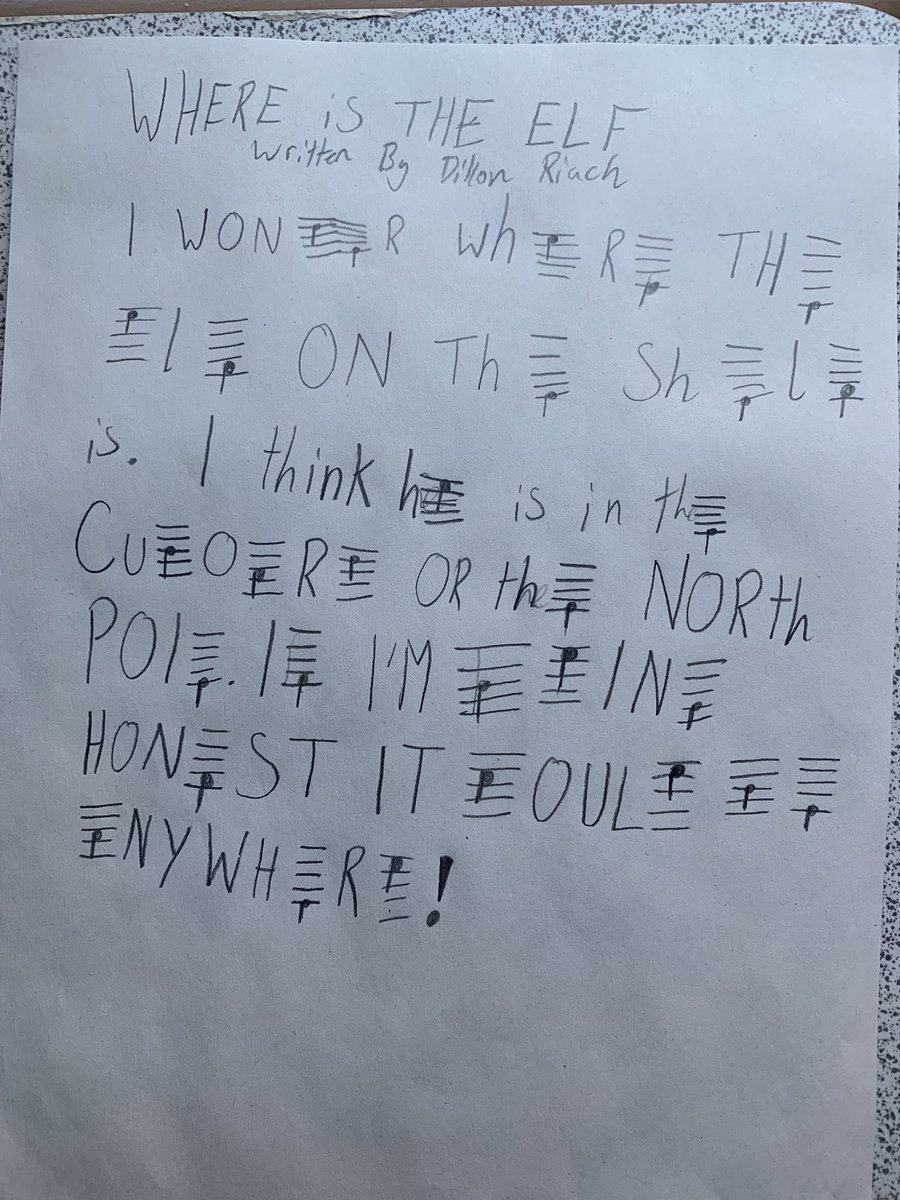 WHERE iS THE ELF
Written By Dillon Riach
I WON♩♩R Wh♩R♩ TH♩
♩l♩ ON Th♩ Sh♩l♩
is. I think h♩ is in the♩
CU♩O♩R♩ OR the♩ NORth
POl♩. I♩ I'M ♩♩IN♩
HON♩ST IT ♩OUL♩ ♩♩
♩NYWH♩R♩!